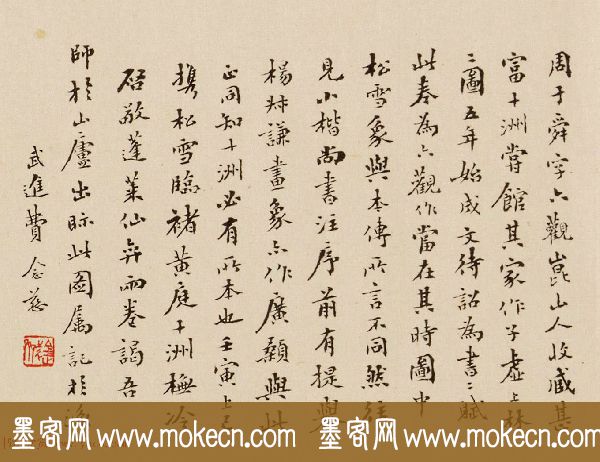 周于舜字六觀崑山人收藏甚
富十洲嘗館其家作子虛上林
二圖五年始成文待詔為書二賦
此卷為六觀作當在其時圖中
松雪象與本傳所言不同然往
見小楷尚書注序前有提舉
楊叔謙畫象亦作廣顙與此
正同知十洲必有所本也壬寅上元
携松雪臨褚黃庭十洲撫冷
啓敬蓬萊仙弈兩卷謁吾
師於山廬出眎此圖屬記於後
武進費念慈
墨客网 www.mokecn.com 墨客网 www.mokecn.com